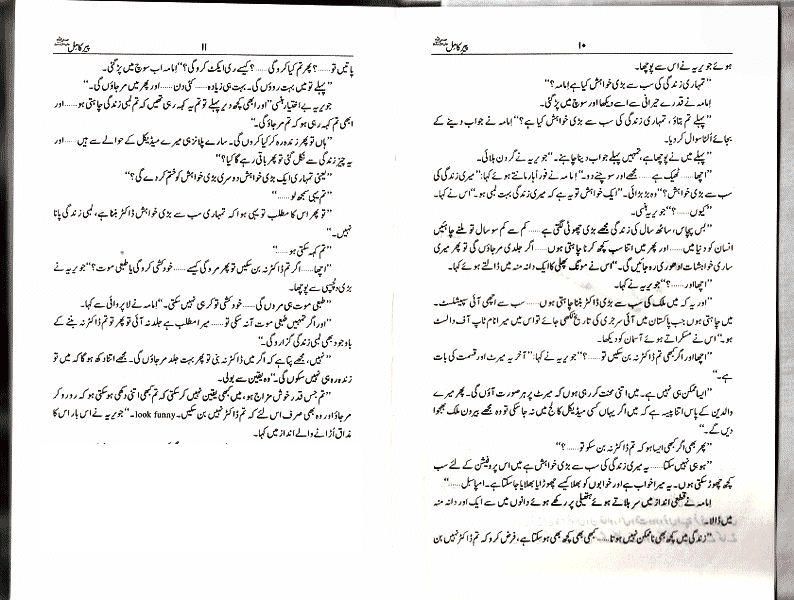 ۱۰
پیرِ کامل
ہوئے جویریہ نے اس سے پوچھا۔
”تمہاری زندگی کی سب سے بڑی خواہش کیا ہے امامہ؟“
امامہ نے قدرے حیرانی سے اسے دیکھا اور سوچ میں پڑ گئی۔
”پہلے تم بتاؤ، تمہاری زندگی کی سب سے بڑی خواہش کیا ہے؟“ امامہ نے جواب دینے کے
بجائے اُلٹا سوال کر دیا۔
”پہلے میں نے پوچھا ہے، تمہیں پہلے جواب دینا چاہئے۔“ جویریہ نے گردن ہلائی۔
”اچھا...... ٹھیک ہے...... مجھے اور سوچنے دو۔“ امامہ نے فوراً ہار مانتے ہوئے کہا۔ ”میری زندگی کی
سب سے بڑی خواہش؟“ وہ بڑبڑائی۔ ”ایک خواہش تو یہ ہے کہ میری زندگی بہت لمبی ہو۔“ اس نے کہا۔
”کیوں......؟“ جویریہ ہنسی۔
”بس پچاس، ساٹھ سال کی زندگی مجھے بڑی چھوٹی لگتی ہے...... کم سے کم سو سال تو ملنے چاہئیں
انسان کو دنیا میں...... اور پھر میں اتنا سب کچھ کرنا چاہتی ہوں...... اگر جلدی مر جاؤں گی تو پھر میری
ساری خواہشات ادھوری رہ جائیں گی۔“ اس نے مونگ پھلی کا ایک دانہ منہ میں ڈالتے ہوئے کہا۔
”اچھا اور......؟“ جویریہ نے کہا۔
”اور یہ کہ میں ملک کی سب سے بڑی ڈاکٹر بننا چاہتی ہوں...... سب سے اچھی آئی سپیشلسٹ۔
میں چاہتی ہوں جب پاکستان میں آئی سرجری کی تاریخ لکھی جائے تو اس میں میرا نام ٹاپ آف دا لسٹ
ہو۔“ اس نے مسکراتے ہوئے آسمان کو دیکھا۔
”اچھا اور اگر کبھی تم ڈاکٹر نہ بن سکیں تو......؟“ جویریہ نے کہا۔ ”آخر یہ میرٹ اور قسمت کی بات
ہے۔“
”ایسا ممکن ہی نہیں ہے۔ میں اتنی محنت کر رہی ہوں کہ میرٹ پر ہر صورت آؤں گی۔ پھر میرے
والدین کے پاس اتنا پیسہ ہے کہ میں اگر یہاں کسی میڈیکل کالج میں نہ جا سکی تو وہ مجھے بیرون ملک بھجوا
دیں گے۔“
”پھر بھی اگر کبھی ایسا ہو کہ تم ڈاکٹر نہ بن سکو تو......؟“
”ہو ہی نہیں سکتا...... یہ میری زندگی کی سب سے بڑی خواہش ہے میں اس پروفیشن کے لئے سب
کچھ چھوڑ سکتی ہوں۔ یہ میرا خواب ہے اور خوابوں کو بھلا کیسے چھوڑا یا بھلایا جا سکتا ہے۔ امپاسبل......“
امامہ نے قطعی انداز میں سر ہلاتے ہوئے ہتھیلی پر رکھے ہوئے دانوں میں سے ایک اور دانہ منہ
میں ڈالا۔
”زندگی میں کچھ بھی ناممکن نہیں ہوتا...... کبھی بھی کچھ بھی ہو سکتا ہے، فرض کرو کہ تم ڈاکٹر نہیں بن
۱۱
پیرِ کامل
پاتیں تو......؟ پھر تم کیا کرو گی......؟ کیسے ری ایکٹ کرو گی؟“ امامہ اب سوچ میں پڑ گئی۔
”پہلے تو میں بہت روؤں گی۔ بہت ہی زیادہ...... کئی دن...... اور پھر میں مر جاؤں گی۔“
جویریہ بے اختیار ہنسی۔ ”اور ابھی کچھ دیر پہلے تو تم یہ کہہ رہی تھیں کہ تم لمبی زندگی چاہتی ہو...... اور
ابھی تم کہہ رہی ہو کہ تم مر جاؤ گی۔“
”ہاں تو پھر زندہ رہ کر کیا کروں گی۔ سارے پلانز ہی میرے میڈیکل کے حوالے سے ہیں...... اور
یہ چیز زندگی سے نکل گئی تو پھر باقی رہے گا کیا؟“
”یعنی تمہاری ایک بڑی خواہش دوسری بڑی خواہش کو ختم کر دے گی؟“
”تم یہی سمجھ لو......“
”تو پھر اس کا مطلب تو یہی ہوا کہ تمہاری سب سے بڑی خواہش ڈاکٹر بننا ہے، لمبی زندگی پانا
نہیں۔“
”تم کہہ سکتی ہو......“
”اچھا...... اگر تم ڈاکٹر نہ بن سکیں تو پھر مرو گی کیسے...... خودکشی کرو گی یا طبعی موت؟“ جویریہ نے
بڑی دلچسپی سے پوچھا۔
”طبعی موت ہی مروں گی...... خودکشی تو کر ہی نہیں سکتی۔“ امامہ نے لاپروائی سے کہا۔
”اور اگر تمہیں طبعی موت آ نہ سکی تو...... میرا مطلب ہے جلد نہ آئی تو پھر تو تم ڈاکٹر نہ بننے کے
باوجود بھی لمبی زندگی گزارو گی۔“
”نہیں، مجھے پتا ہے کہ اگر میں ڈاکٹر نہ بنی تو پھر بہت جلد مر جاؤں گی۔ مجھے اتنا دکھ ہو گا کہ میں تو
زندہ رہ ہی نہیں سکوں گی۔“ وہ یقین سے بولی۔
”تم جس قدر خوش مزاج ہو، میں کبھی یقین نہیں کر سکتی کہ تم کبھی اتنی دکھی ہو سکتی ہو کہ رو رو کر
مر جاؤ اور وہ بھی صرف اس لئے کہ تم ڈاکٹر نہیں بن سکیں۔ look funny۔“ جویریہ نے اس بار اس کا
مذاق اُڑانے والے انداز میں کہا۔